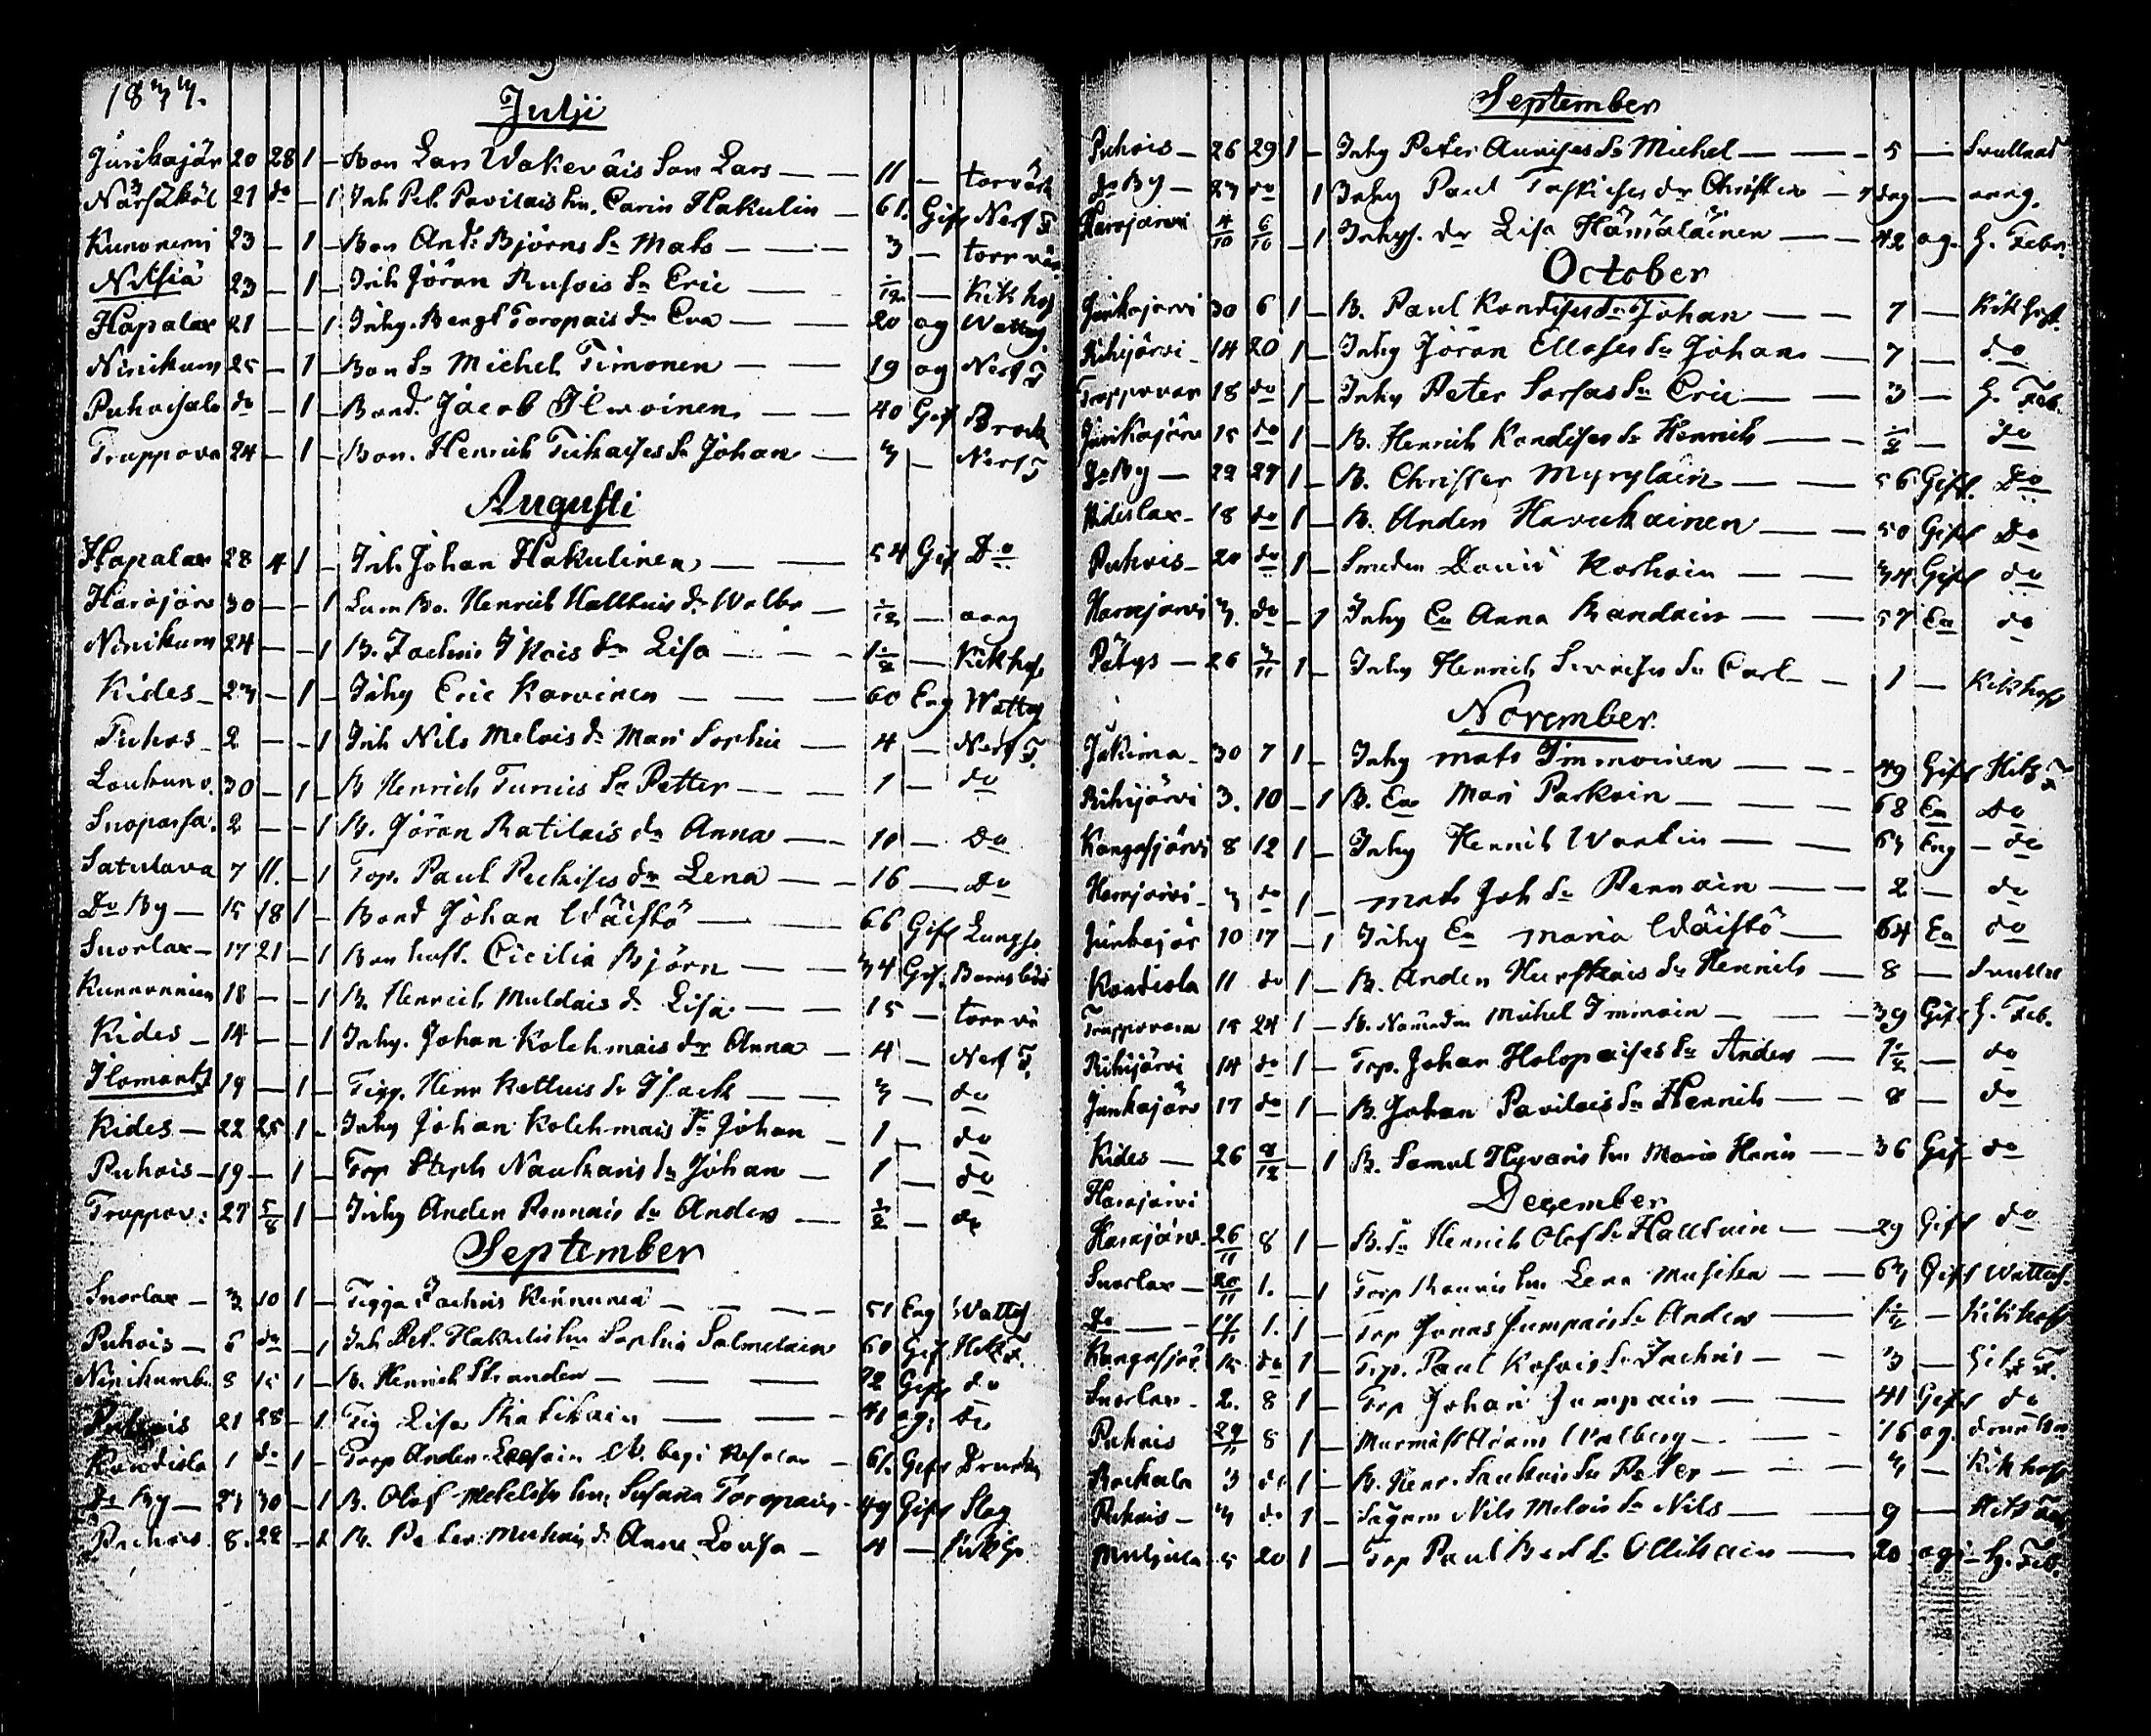 1833.
Julji
Junkajär 20 28 1 — Bon Lars Wakeväis Son Lars — — 11 — torrvärk
Närsäköl 21 do — 1 Inh Pet. Pavilais hu. Carin Hakulin — 61. Gift Nerf F
Kunonemi 23 — 1 — Bon And: Björns Sn Mats — — 3 — torr vär
Nilsiä 23 — 1 — Inh Jöran Rusois Sn Eric — 1/12 — Kikhos
Hapalax 21 — — 1 Inhy. Bengt Toropais dr Eva — — 20 og Wattus
Niinikum 25 — 1 — Bon Sn Michel Timonen — — 19 og Nerf F
Puhoisalo do — 1 — Bond. Jacob Ilwoinen — — 40 Gif Brock
Truppova 24 — 1 — Bon. Henrich Tiihaises Sn Johan — 3 — Nerf F
Augusti
Hapalax 28 4 1 — Inh Johan Hakulinen — — 54 Gif Do
Harajärv 30 — — 1 Henrich Halttuis dr Walbo — 1/12 — aang
Niinikum 24 — — 1 B. Zachris dr Lisa — — 1 1/2 — Kikhos
Kides — 23 — 1 — Inhy Eric Karvinen — — — 60 Eng Wattus
Puhos — 2 — — 1 Inh Nils Melais dr Mari Sophie — 4 — Nerf F.
Loukuno. 30 — 1 — B Henrich Turuis Sn Petter — — 1 — do
Suoparsa. 2 — — 1 B. Jöran Ratilais dr Anna — — 10 — Do
Satulava 7 11. — 1 Torp. Paul Peckises dr Lena — — 16 — Do
Do By — 15 18 1 — Bond Johan Wäistö — — 66 Gift Lungso
Suorlax — 17 21 — 1 Bon hust. Cicilia Björn — — 34 Gif. Barnsbörd
Kunnonniem 18 — — 1 B. Henrich Muldais dr Lisa — — 15 — torrvä
Kides — 14 — — 1 Inhy. Johan Kolehmais dr Anna — 4 — Nerf F.
Ilomants 19 — 1 — Tigg. Henr Kettuis Sn Isack — — 3 — do
Kides — 22 25 1 — Inhy Johan Kolehmais Sn Johan — 1 — do
Puhois — 19 — 1 — Torp Steph Naukaris Sn Johan — 1 — do
Truppov: 27 5/8 1 — Inhy Anders Pennais Sn Anders — 1/2 — do
September
Suorlax — 3 10 1 — Tigga Zachris Kinnunen — — — 51 Eng Wattus
Puhois — 6 do — 1 Inh Pet. Hakulis hu Sophia Salmelain 60 Gif. Het. F.
Niinikumb. 8 15 1 — B. Henrich Strander — — — 72 Gift do
Puhois 21 28 — 1 Tig Lisa — — 41 og. do
Kondisla 1 do 1 — Torp Anders — 61. Gift Drunk
Do By — 23 30 — 1 B. Olof hu Susana Toropain — 49 Gift Slag
Puhois 8. 28 — 1 B. Peter Muhais dr Anna Lovisa — 4 — Kikho
September
Puhois — 26 29 1 — Inhy Peter Aunises Sn Michel — — 5 — Svullnad
Do By — 23 do 1 Inhy Paul dr Christin — dag — aang.
Harajärvi 4/10 6/10 — 1 Inhys. dr Lisa Hämäläinen — — 42 og. H. Feber.
October
Junkajärvi 30 6 1 — B. Paul Kondises Sn Johan — — 7 — Kikhost.
Riihijärvi — 14 20 1 — Inhy Jöran Ellases Sn Johan — 7 — do
Truppovar 18 do 1 — Inhy Peter Sorsas Sn Eric — — 3 — H. Feb.
Junkajärv 15 do 1 — B. Henrich Kondises Sn Henrich — — 1/2 — do
Do By — 22 27 1 — B. Christer Myrylain — — 56 Gift. Do
Kideslax — 18 do 1 — B. Anders Havukainen — — 50 Gift Do
Puhois — 20 do 1 — Smeden David Korhoin — — 34 Gift do
Harajärvi 3. do — 1 Inhy Ea Anna Randain — — 57 Ea do
Potys — 26 3/11 1 — Inhy Henrich Sn Carl — — 1 — Kikhost
November
Jukima — 30 7 1 — Inhy Mats Immoinen — — — 49 Gift Hits F
Riihijärvi 3. 10 — 1 B. Ea Mari Parkoin — — — 68 Ea Do
Kangasjärvi 8 12 1 — Inhy Henrich Wartin — — 63 Eng — do
Harajärvi — 3 do 1 — Mats Joh Sn Pennain — — 2 — do
Junkajär 10 17 — 1 Inhy Ea Maria Wäistö — 64 Ea do
Kondisla 11 do 1 — B. Anders Hurskais Sn Henrich — 8 — Svulln
Truppovara 15 24 1 — Michel Immoin — — 39 Gift H. Feb.
Riihijärvi 14 do 1 — Torp. Johan Holopaises Sn Anders — 1 1/2 — do
Junkajärv 17 do 1 — B. Johan Pavilais Sn Henrich — — 8 — do
Kides — 26 8/12 — 1 B. Samul Hyvaris hu Maria — — 36 Gif do
Harajärvi
December
Harajärv. 26/11 8 1 — B. Sn Henrich Olof Sn Halttuin — 29 Gift do
Suorlax — 20/11 1. — 1 Torp hu Lena Musika — — 63 Gift Wattus
Do — 1. 1 — Torp Jonas Jumpais Sn Anders — 1 1/2 — Kikhost
Kangasjär. 15 do 1 — Torp. Paul Kosois Sn Zachris — — 3 — Hits F.
Suorlax — 2. 8 1 — Torp Johan Jumpain — — 41 Gift do
Puhois 29/11 8 1 — Murmäst Adam Walberg — — 76 og.
3 do 1 — B. Henr. Laukais Sn Peter — — 3 — Kikhost
Puhois — 3 do 1 — Nils Melais Sn Nils — — 9 —
Muljula 5 20 1 — Torp Paul Ollikain — 20 ogi — H. Feb.